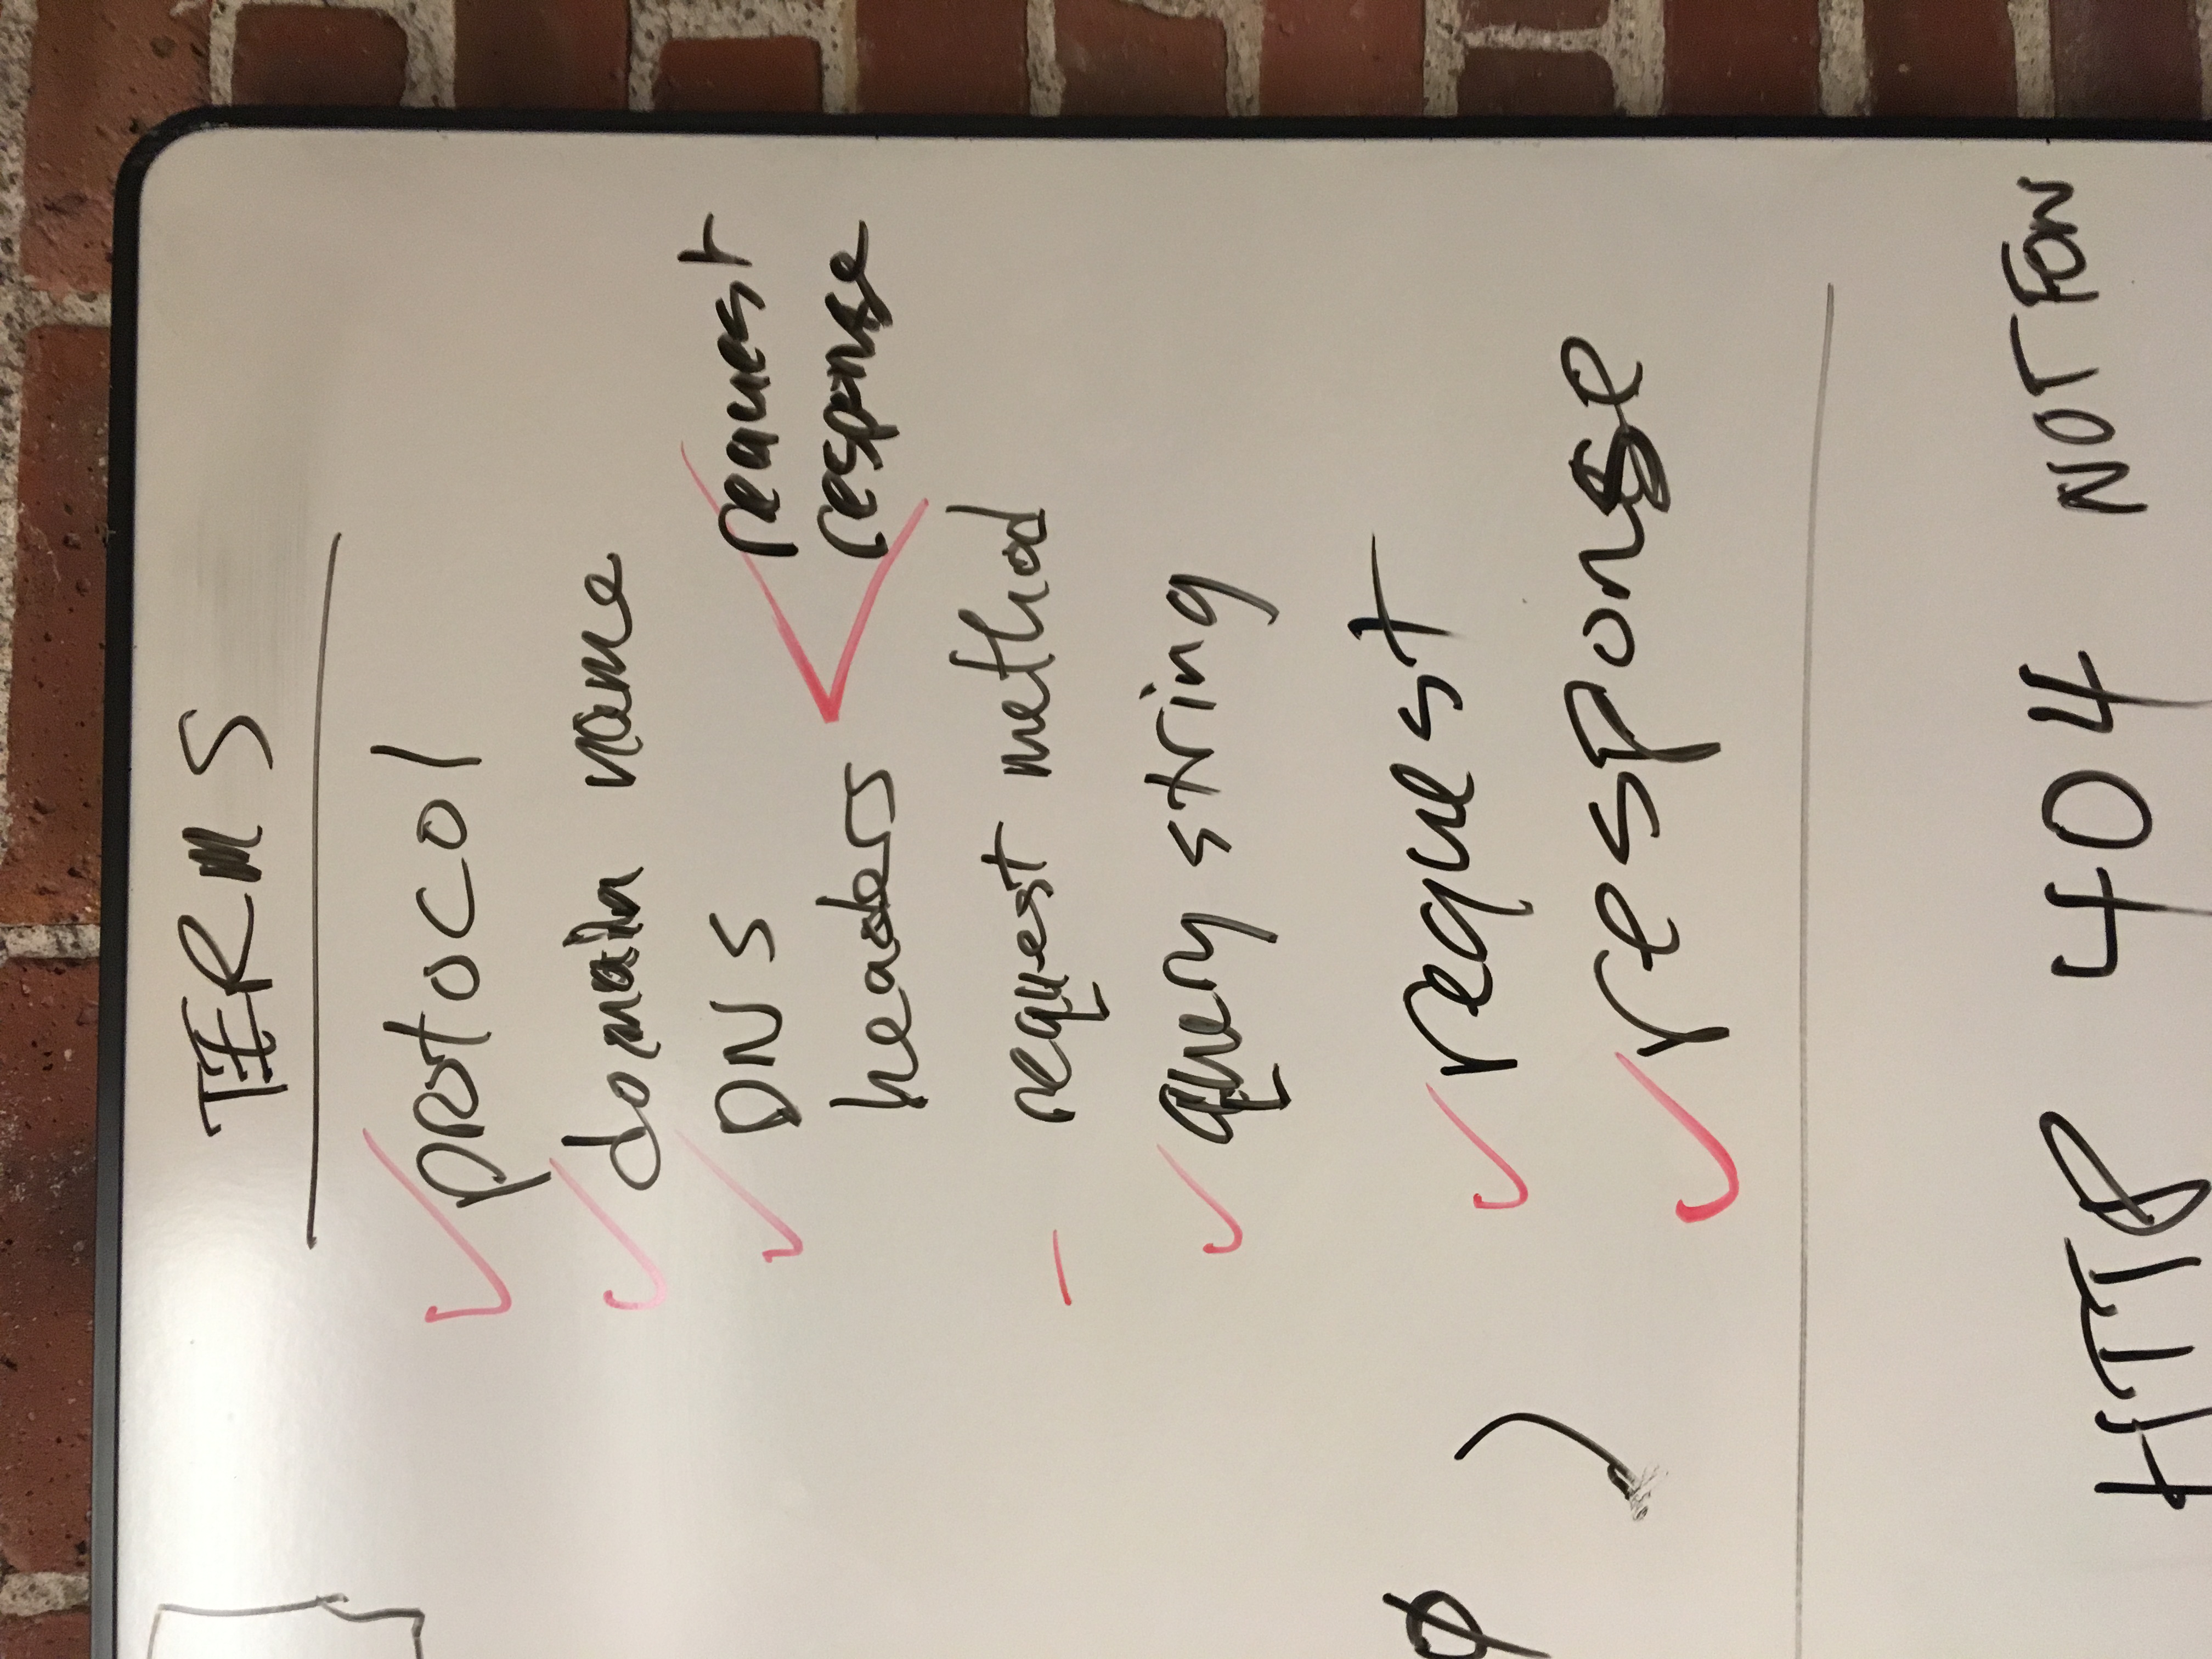 TERMS
protocol
domain name
DNS
headers
request
response
request method
query string
request
response
404 NOT FOUN